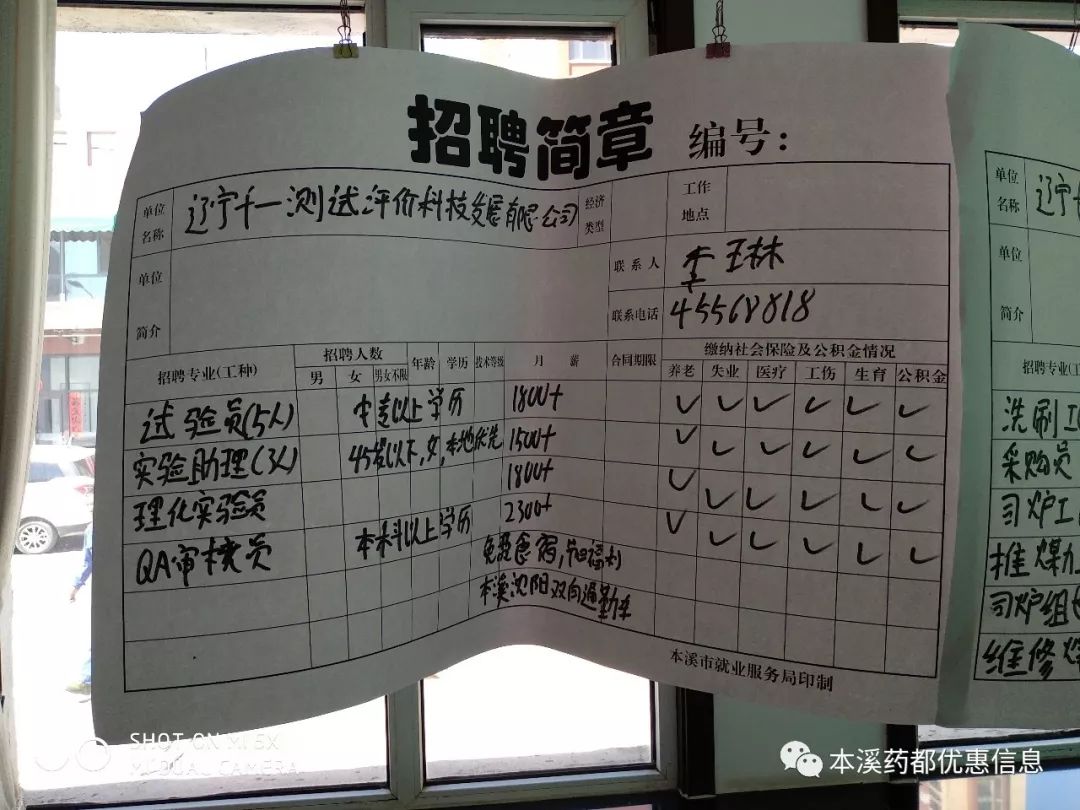 招聘简章 编号:
单位名称 辽宁千一测试评价科技发展有限公司 经济类型 工作地点
单位简介 联系人 李玉林
联系电话 45568818
招聘专业(工种) 招聘人数 年龄 学历 技术等级 月薪 合同期限 缴纳社会保险及公积金情况
男 女 男女不限 养老 失业 医疗 工伤 生育 公积金
试验员(5人) 中专以上学历 1800+ ✓ ✓ ✓ ✓ ✓ ✓
实验助理(3人) 45岁以下,女,本地优先 1500+ ✓ ✓ ✓ ✓ ✓ ✓
理化实验员 1800+ ✓ ✓ ✓ ✓ ✓ ✓
QA审核员 本科以上学历 2300+ ✓ ✓ ✓ ✓ ✓ ✓
免费食宿,节日福利
本溪沈阳双向通勤车
本溪市就业服务局印制
单位名称 辽宁
单位简介
招聘专业(工
洗刷工
采购员
司炉工
推煤
司炉组
维修
SHOT ON MI 5X
MI DUAL CAMERA
本溪药都优惠信息